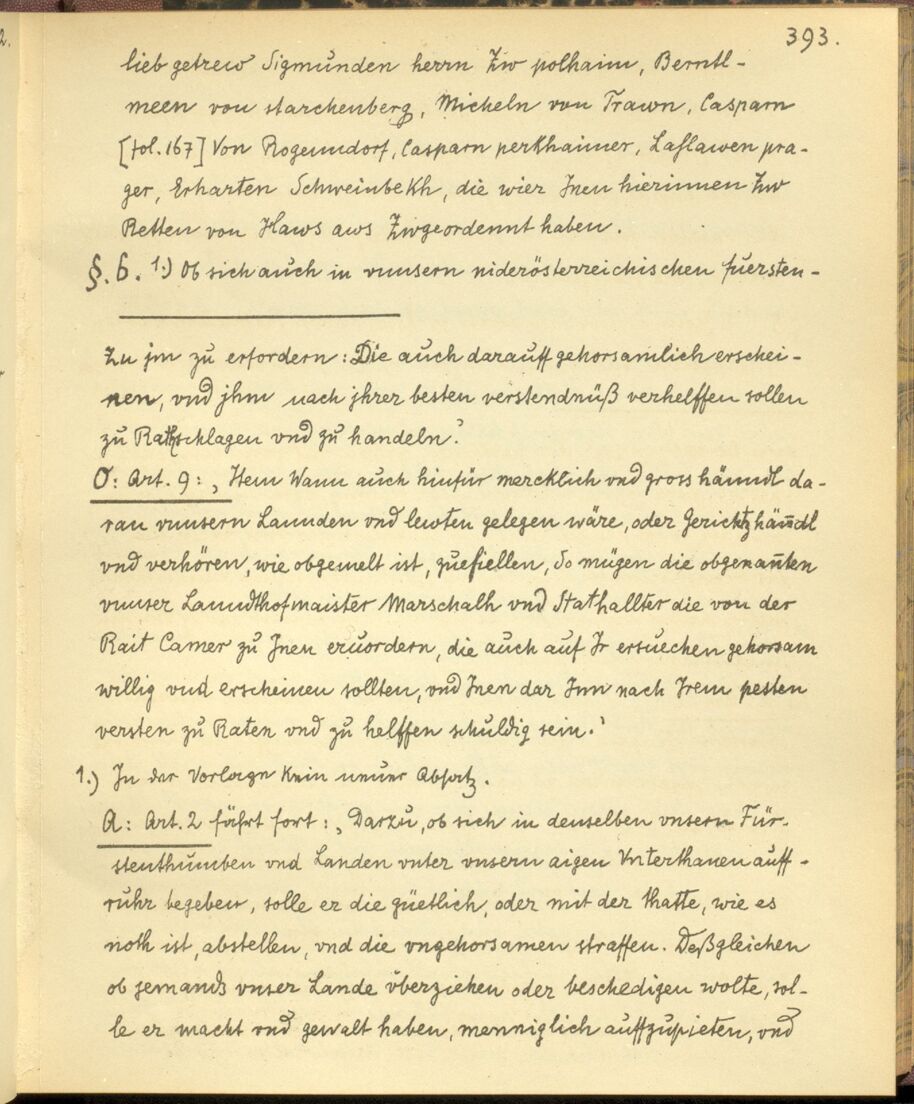 393.
lieb getrew Sigmunden herrn Zw polhaim, Berntl-
meen von starchenberg, Micheln von Trawn, Casparn
[fol. 167] Von Rogenndorf, Casparn perkhaimer, Laßlawen pra-
ger, Erharten Schweinbekh, die wier Jnen hierinnen Zw
Retten von Haws aws Zwgeordennt haben.
§. 6. 1.) Ob sich auch in vnnsern niderösterreichischen fuersten-
Zu jm zu erfordern: Die auch darauff gehorsamlich erschei-
nen, vnd jhm nach jhrer besten verstendnüß verhelffen sollen
zu Rathschlagen vnd zu handeln.'
O: Art. 9: ‚Item Wann auch hinfür mercklich vnd gross hänndl da-
ran vnnsern Lannden vnd lewten gelegen wäre, oder Gerichtzhänndl
vnd verhören, wie obgemelt ist, zuefiellen, So mügen die obgenan̄ten
vnnser Lanndthofmaister Marschalh vnd Stathallter die von der
Rait Camer zu Jnen eruordern, die auch auf Ir ersuechen gehorsam
willig vnd erscheinen sollten, vnd Jnen dar Jnn nach Jrem pesten
versten zu Raten vnd zu helffen schuldig sein.'
1.) In der Vorlage kein neuer Absatz.
A: Art. 2 fährt fort: ‚Darzu, ob sich in denselben vnsern Für-
stenthumben vnd Landen vnter vnsern aigen Vnterthanen auff-
ruhr begeben, solle er die güetlich, oder mit der thatte, wie es
noth ist, abstellen, vnd die vngehorsamen straffen. Deßgleichen
ob jemands vnser Lande überziehen oder beschedigen wolte, sol-
le er macht vnd gewalt haben, menniglich auffzupieten, vnd